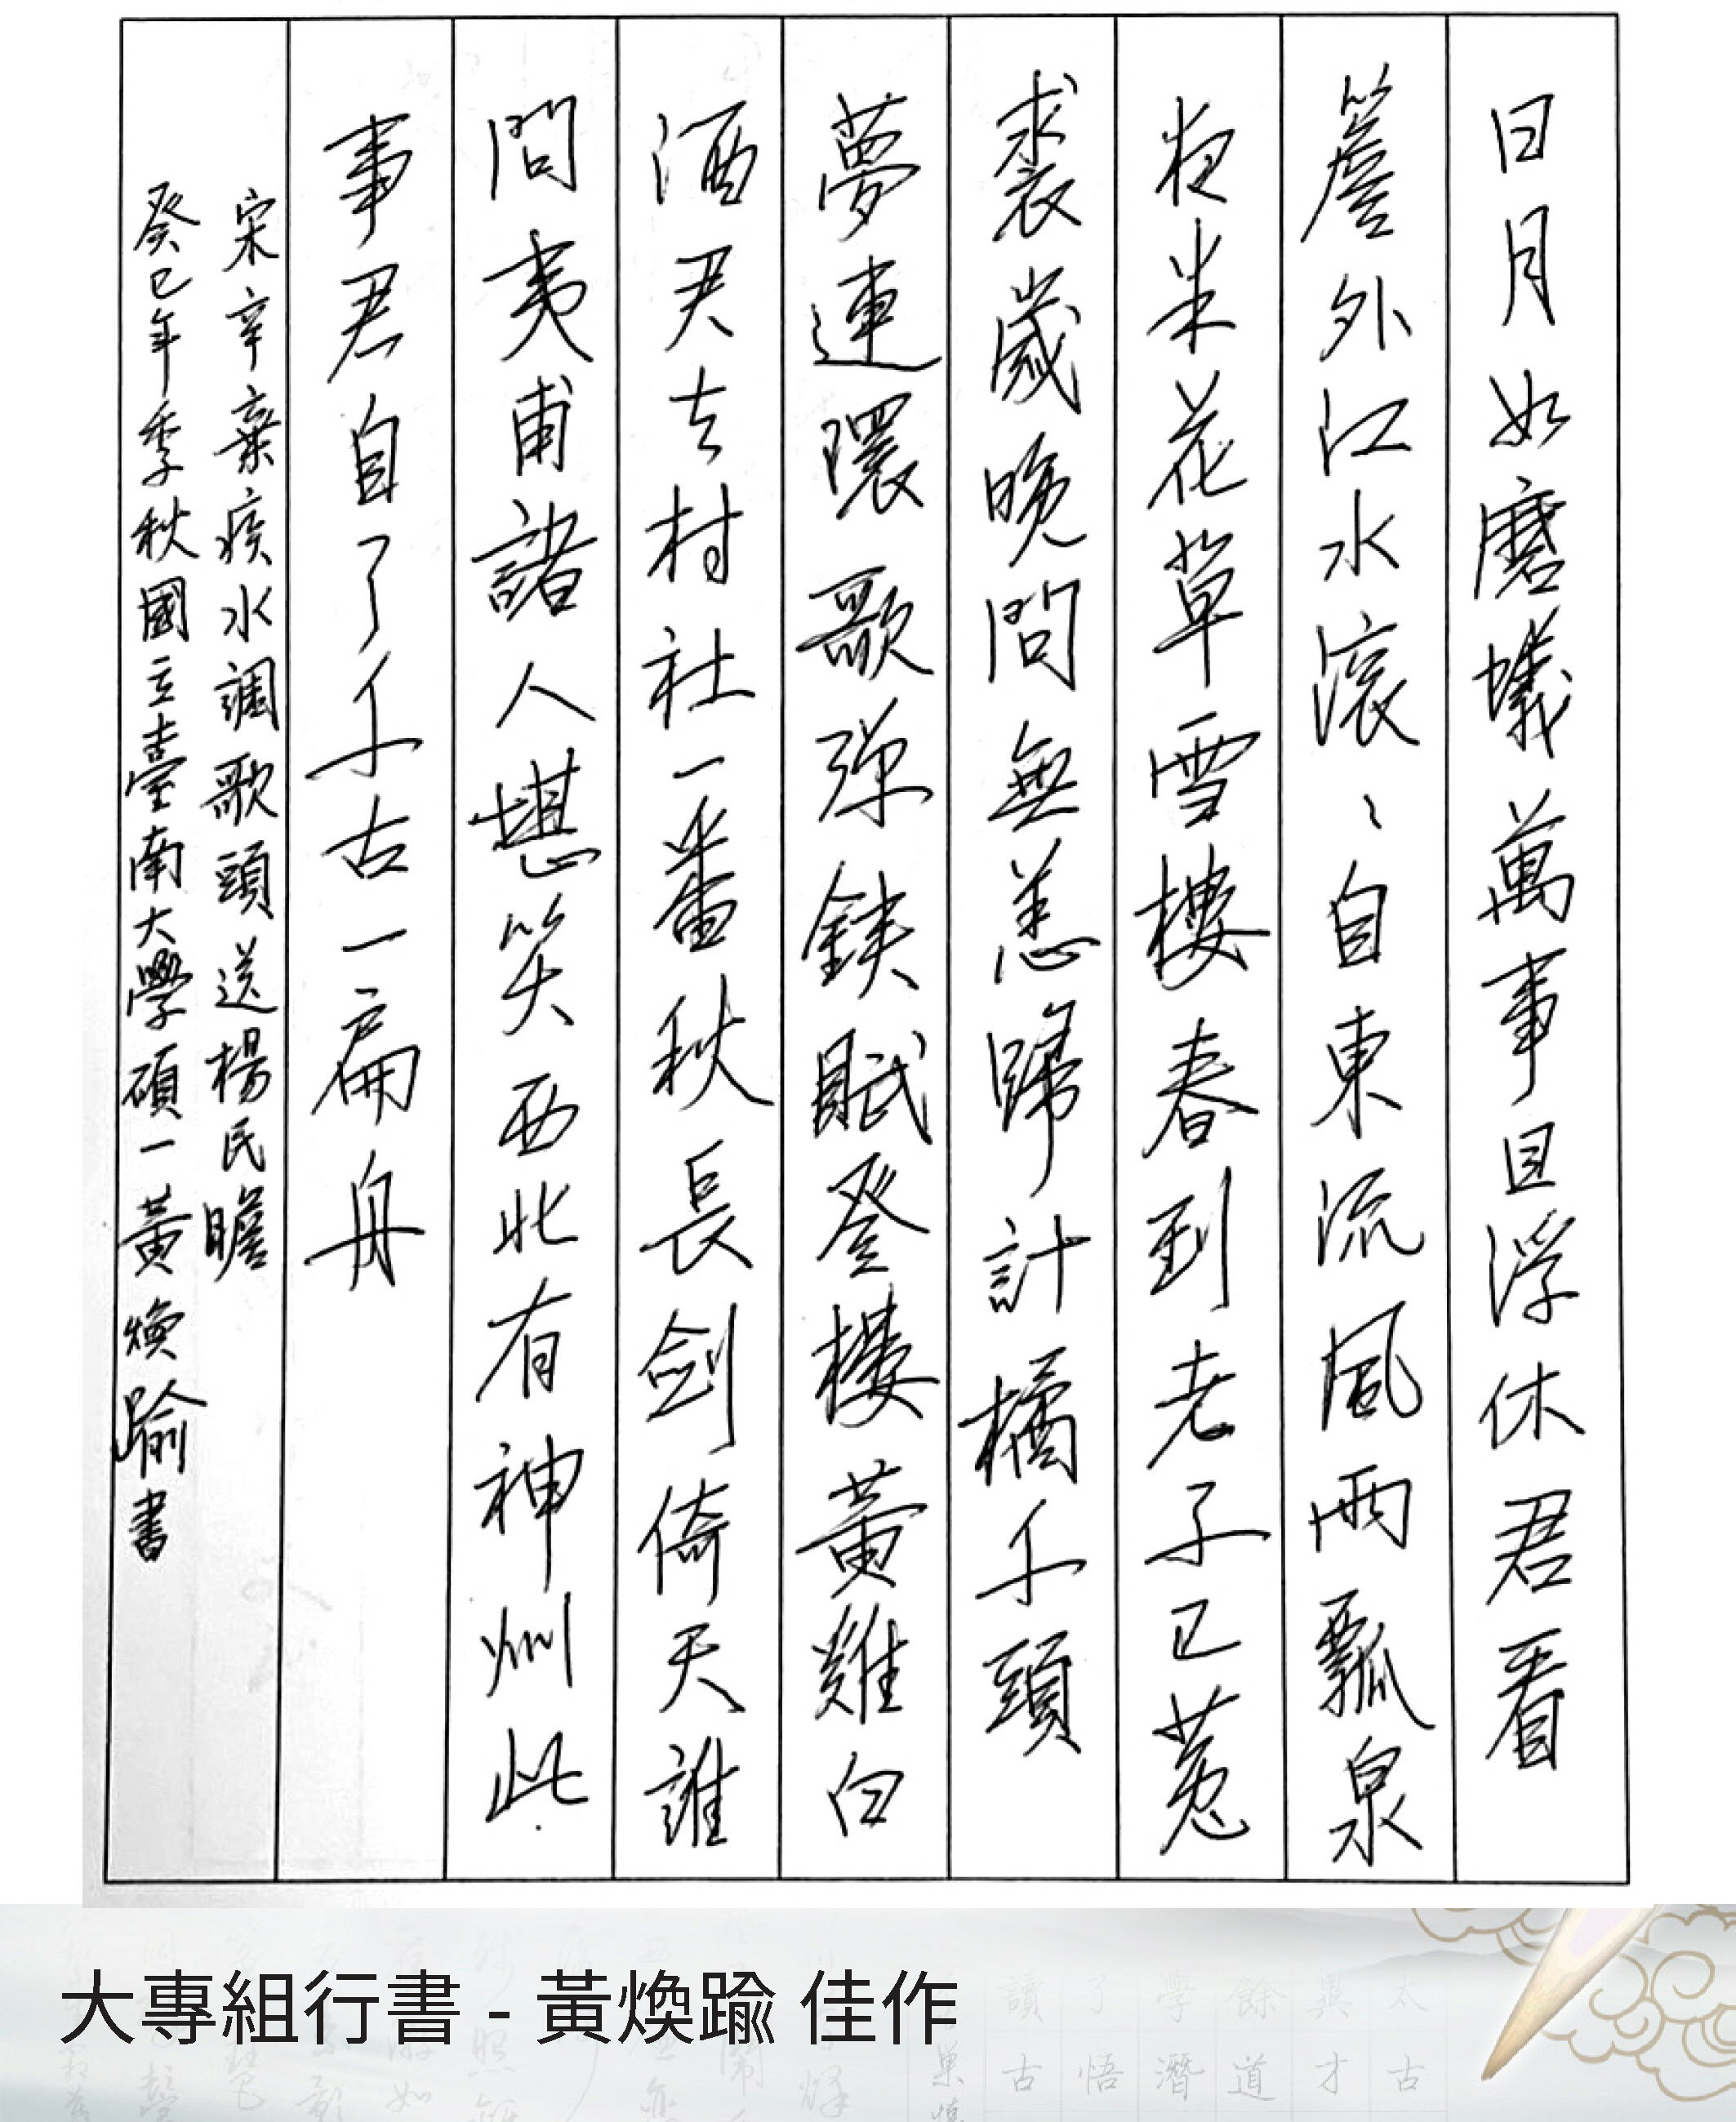 日月如磨蟻萬事且浮休君看
簷外江水滾〻自東流風雨瓢泉
夜半花草雪樓春到老子已菟
裘歲晚問無恙歸計橘千頭
夢連環歌彈鋏賦登樓黃雞白
酒君去村社一番秋長劍倚天誰
問夷甫諸人堪笑西北有神州此
事君自了千古一扁舟
宋辛棄疾水調歌頭送楊民瞻
癸巳年季秋國立臺南大學碩一黃煥踰書
大專組行書 - 黃煥踰 佳作
太古
與才
餘道
學潛
了悟
讀古